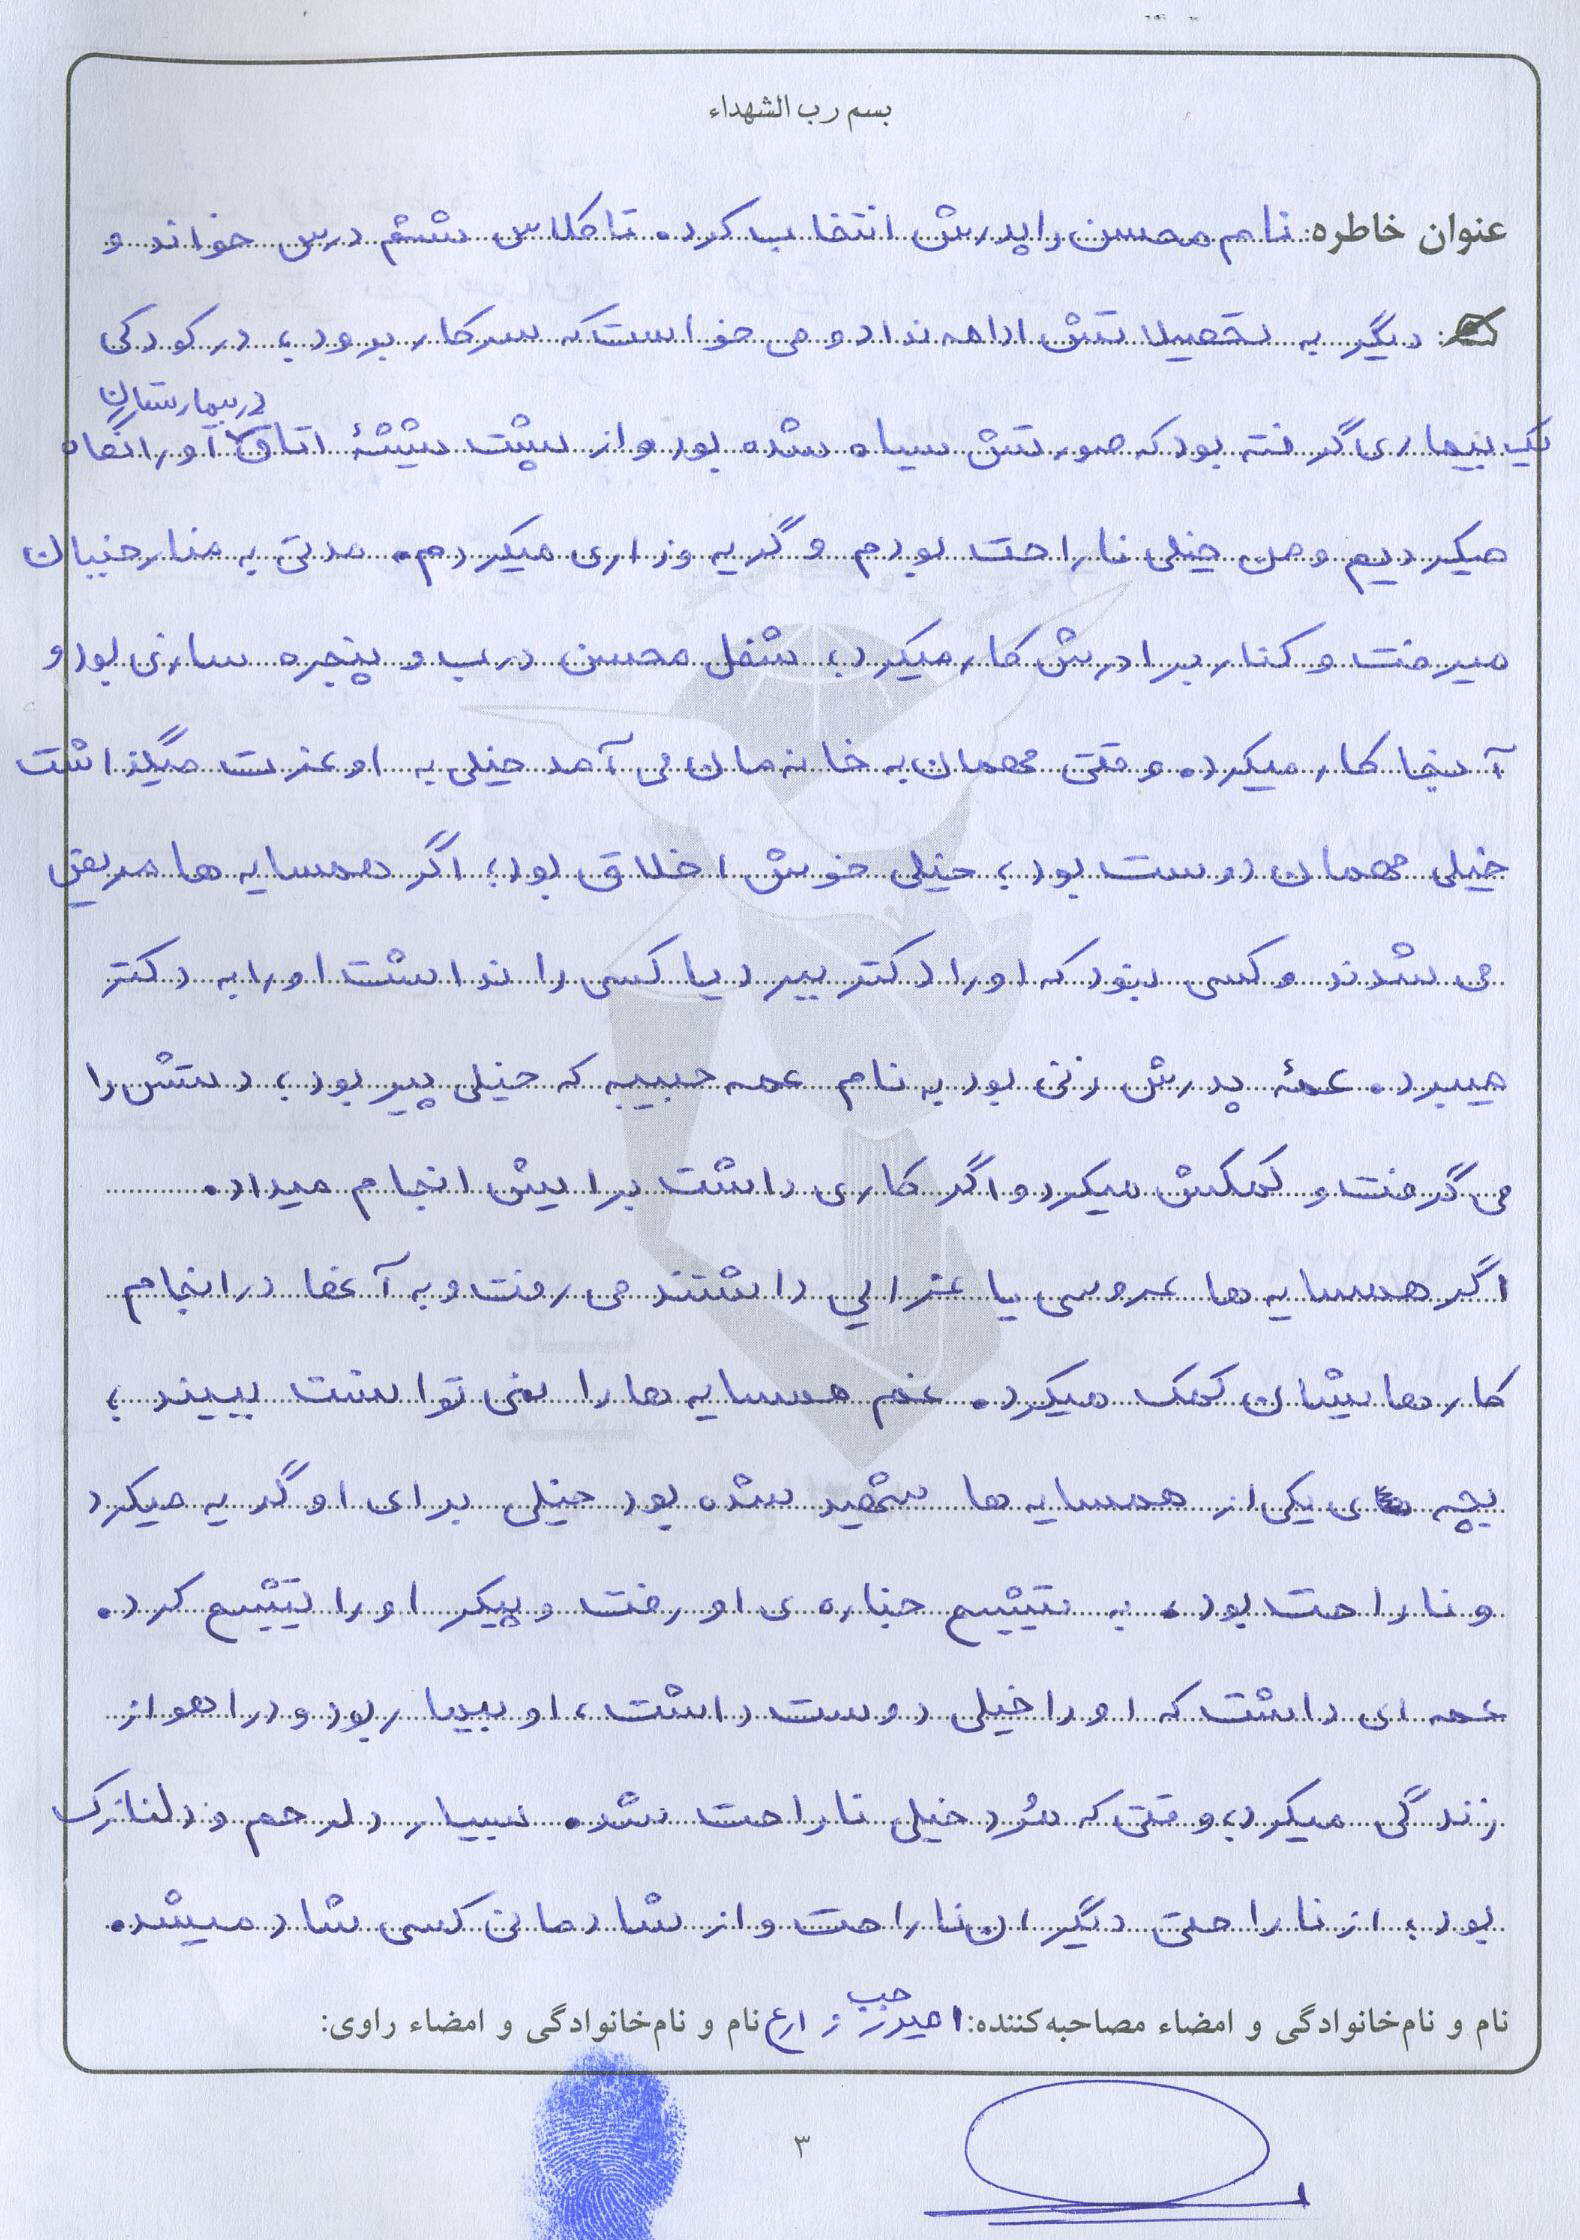 بسم رب الشهداء
عنوان خاطره: نام محسن را پدرش انتخاب کرد. تا کلاس ششم درس خواند و
دیگر به تحصیلاتش ادامه نداد و می خواست که سرکار برود، در کودکی
در بیمارستان
یک بیماری گرفته بود که صورتش سیاه شده بود و از پشت شیشهٔ اتاق او را نگاه
میکردیم و من خیلی ناراحت بودم و گریه وزاری میکردم. مدتی به منارجنبان
میرفت و کنار برادرش کار میکرد، شغل محسن درب و پنجره سازی بود و
آنجا کار میکرد. وقتی مهمان به خانه مان می آمد خیلی به او عزت میگذاشت
خیلی مهمان دوست بود، خیلی خوش اخلاق بود؛ اگر همسایه ها مریض
می شدند و کسی نبود که او را دکتر ببرد یا کسی را نداشت او را به دکتر
میبرد. عمهٔ پدرش زنی بود به نام عمه حبیبه که خیلی پیر بود، دستش را
می گرفت و کمکش میکرد و اگر کاری داشت برایش انجام میداد.
اگر همسایه ها عروسی یا عزایی داشتند می رفت و به آنها در انجام
کارهایشان کمک میکرد. غم همسایه ها را نمی توانست ببیند؛
بچه ی یکی از همسایه ها شهید شده بود خیلی برای او گریه میکرد
و ناراحت بود، به تشیع جنازه ی او رفت و پیکر او را تشیع کرد.
عمه ای داشت که او را خیلی دوست داشت، او بیمار بود و در اهواز
زندگی میکرد، وقتی که مُرد خیلی ناراحت شد. بسیار دلرحم و دلنازک
بود؛ از ناراحتی دیگران ناراحت و از شادمانی کسی شاد میشد.
نام و نام‌خانوادگی و امضاء مصاحبه‌کننده: زارع نام و نام‌خانوادگی و امضاء راوی:
۳